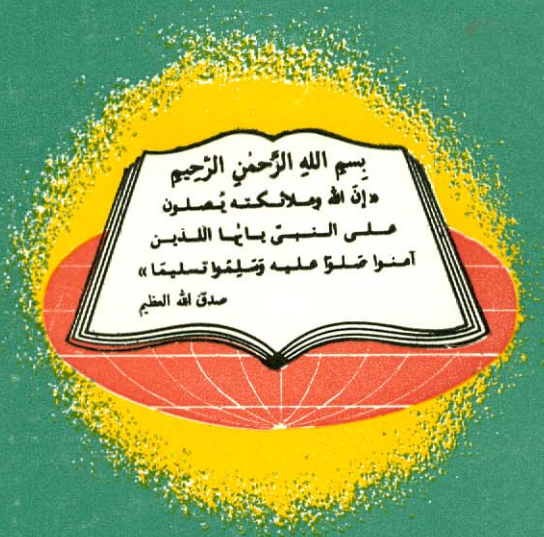 بِسمِ اللهِ الرَّحمٰنِ الرَّحِيمِ
«إنَّ الله وملائكته يُصلون
على النبيّ يا يُّها اللذين
آمنوا صَلوّا عليه وَسَلِمّوا تسليمًا»
صدقَ الله العظيم